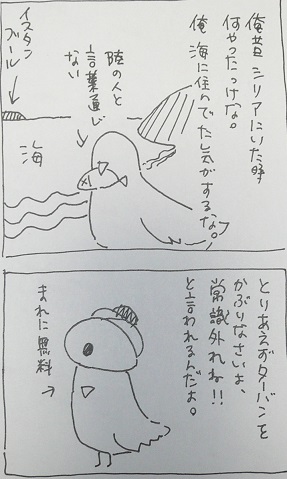 俺昔シリアにいた時
何やったっけな。
俺海に住んでた気がするな。
陸の人と
言葉通じ
ない
イスタン
ブール
海
とりあえずターバンを
かぶりなさいよ、
常識外れね!!
と言われるんだよ。
まれに無料